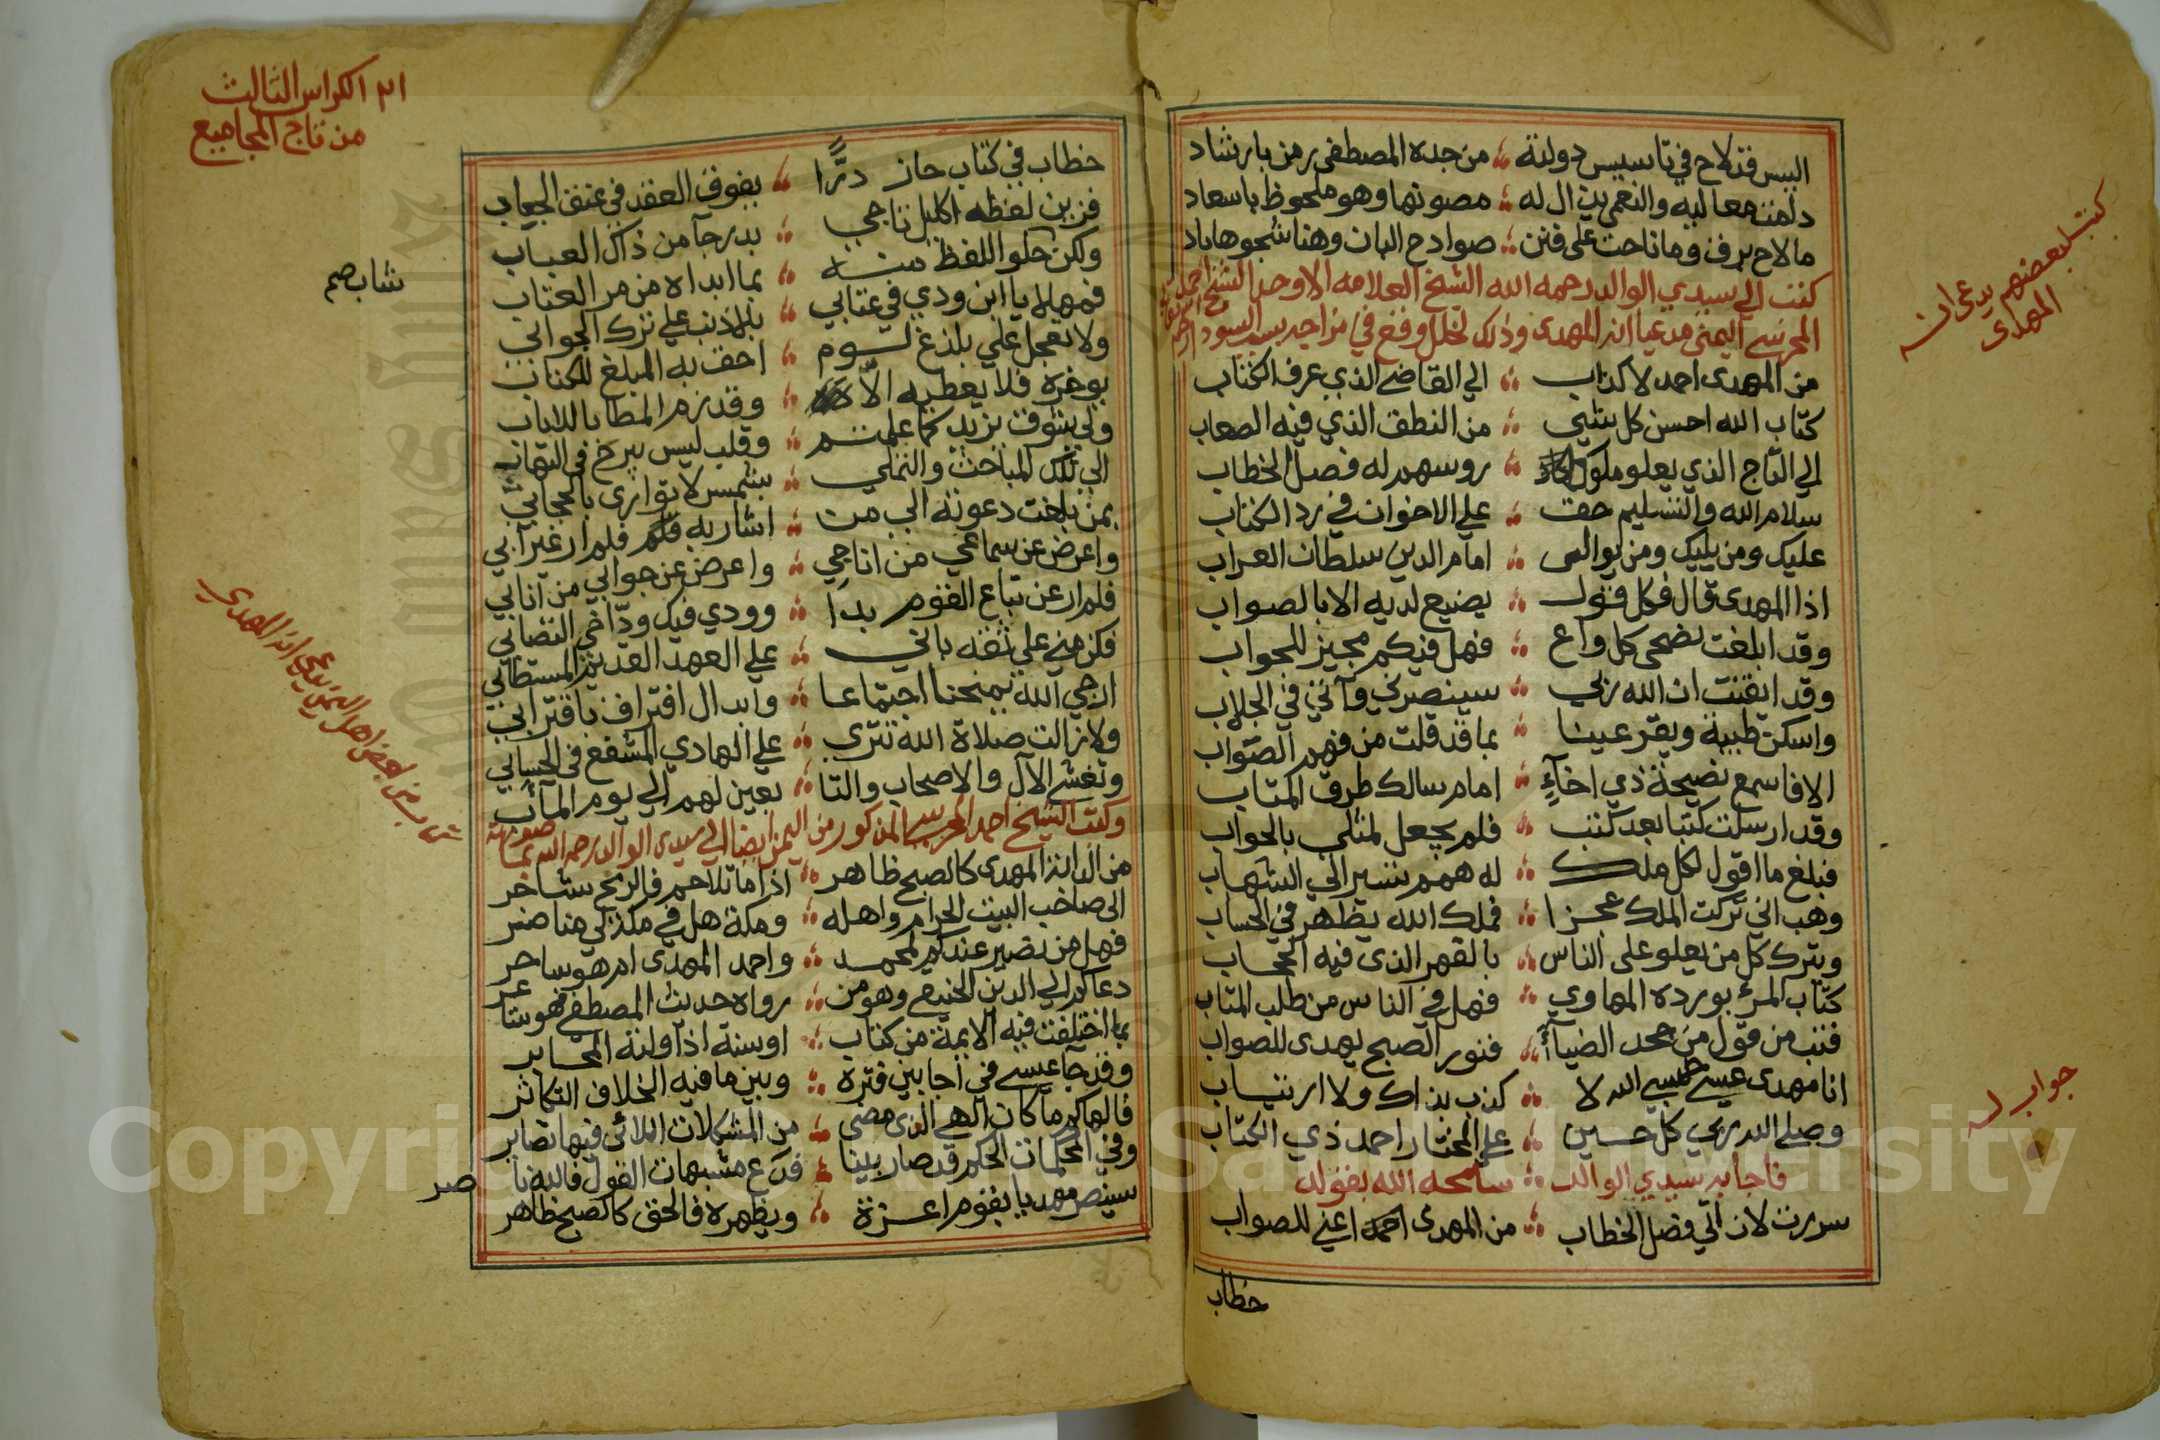 اليس قد لاح في تاسيس دولته من جده المصطفى رمز بارشاد
دامت معاليه والنعمى بدت ال له مصونها وهو ملحوظ باسعاد
ما لاح برق وما ناحت على فنن صوادح البان وهنا شجوها باد
كتب الي سيدي الوالد رحمه الله الشيخ العلامه الاوحد الشيخ احمد
اليمني مدعيا انه المهدى وذلك لخلل وقع في مزاجه
من المهدى احمد لا كذاب الي القاضي الذي عرف الكتاب
كتاب الله احسن كل شيي من النطق الذي فيه الصعاب
الي التاج الذي يعلو ملوك روسهم له فصل الخطاب
سلام الله والتسليم حقا علي الاخوان في رد الكتاب
عليك ومن يليك ومن يوالى امام الدين سلطان العراب
اذا المهدى قال فكل قول يضيع لديه الا بالصواب
وقد ابلغت نصحى كل واع فهل فيكم مجيز للجواب
وقد ايقنت ان الله ربي سينصرني وآتي في الجلاب
واسكن طيبة ويقر عينا بما قد قلت من فهم الصواب
الا فاسمع نصيحة ذي اخاء امام سالك طرق المتاب
وقد ارسلت كتبا بعد كتب فلم يجعل لمثلي بالجواب
فبلغ ما اقول لكل ملك له همم تشير الي الشهاب
وهب اني تركت الملك عجزا فملك الله يظهر في الحساب
ويترك كل من يعلو على الناس بالقهر الذى فيه الحجاب
كتاب المرء يورده المهاوي فهل في الناس من طلب المتاب
فتب من قول من جحد الضياء فنور الصبح يهدى للصواب
انا مهدى عيسى حسبي الله لا كذب بذاك ولا ارتياب
وصلى الله ربي كل حين على المختار احمد ذي الكتاب
فاجابه سيدي الوالد سامحه الله بقوله
سررت لان اتي فصل الخطاب من المهدى احمد اعني للصواب
خطاب
كتب لبعضهم يدعي انه
المهدى
جواب له
٢١ الكراس الثالث
من تاج المجاميع
خطاب في كتاب حاز درا يفوق العقد في عنق الجعاب
فزين لفظه اكليل تاجي بدر جا من ذاك العباب
ولكن حلو اللفظ منه بما ابداه من مر العتاب
فمهلا يا ابن ودي في عتابي بلا ذنب علي ترك الجوابي
ولا تعجل علي بلذغ لوم احق به المبلغ للكتاب
بوخره فلا يعطيه الا وقد زم المطايا للاياب
ولي شوق يزيد كما علمتم وقلب ليس يبرح في التهاب
الي تلك المباحث والتملي بشمس لا توارى بالحجاب
بمن بلغت دعوته الي من اشار به فلم ار غير آبي
واعرض عن سماعي من اناجي واعرض عن جوابي من آنابي
فلم ار عن تباع القوم بدا وودي فيك ودا في التصابي
فكن مني على ثقه باني علي العهد القديم المستطاب
ارجي الله يمنحنا اجتماعا وابدال افتراق باقتراب
ولا زالت صلاة الله تترى علي الهادي المشفع في الحساب
وتغشى الآل والاصحاب والتا بعين لهم الي يوم المآب
وكتب الشيخ احمد المذكور من اليمن ايضا الي سيدي الوالد رحمه الله بما صورته
اذا ما تلاحم فالرمح شاخر
الى صاحب البيت الحرام واهله ومكة هل في مكة لي مناصر
فهل من نصير عندكم لمحمد واحمد المهدى ام هو ساحر
دعاكم الي الدين الحنيفي وهو من رواه حديث المصطفى فهو شاعر
بما اختلفت فيه الايمة من كتاب او سنة اذ اولته المحابر
وقد جا عيسى في اجابين فترة وبين ما فيه الخلاف التكاثر
فالهاكم ما كان الهي الذى مضى من المشكلات اللاتي فيها تصابر
وفي المحكمات الحكم قد صار بينا فدع مشبهات القول فالله ناصر
سينصر مهديا بقوم اعزة ويظهره فالحق كالصبح ظاهر
شاب صم
كتاب من بعض اهل اليمن يدعي انه المهدي
Copyright © King Saud University